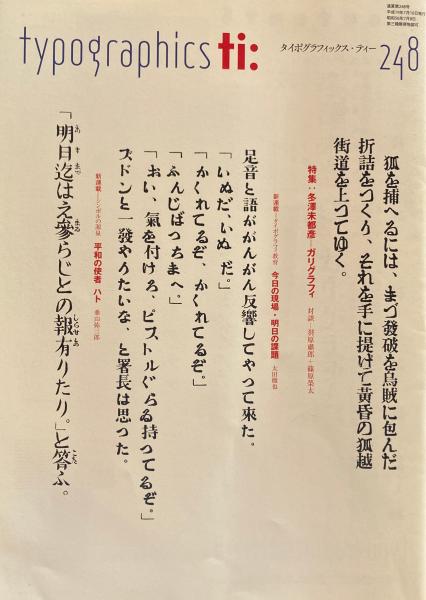 typographics ti:
タイポグラフィックス・ティー
248
通巻第248号
狐を捕へるには、まづ發破を烏賊に包んだ
折詰をつくり、それを手に提げて黄昏の狐越
街道を上つてゆく。
特集：冬澤未都彦―ガリグラフィ 対談―羽原肅郎＋篠原榮太
足音と語ががんがん反響してやって來た。
新連載―タイポグラフィ教育 今日の現場・明日の課題 太田徹也
「いぬだ、いぬ だ。」
「かくれてるぞ、かくれてるぞ。」
「ふんじばつちまへ。」
「おい、氣を付けろ、ピストルぐらゐ持つてるぞ。」
ズドンと一發やりたいな、と署長は思つた。
新連載―シンボルの源泉 平和の使者 ハト
「明日迄はえ參らじとの報有りたり。」と答ふ。